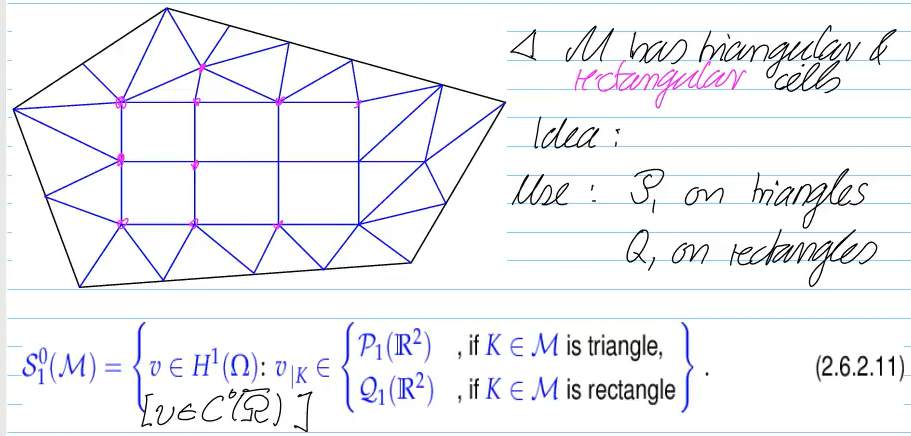 Δ M has triangular &
rectangular cells
Idea :
Use : P₁ on triangles
Q₁ on rectangles
S₁⁰(M) = { v ∈ H¹(Ω): v|K ∈ { P₁(ℝ²) , if K ∈ M is triangle,
Q₁(ℝ²) , if K ∈ M is rectangle } . (2.6.2.11)
[v ∈ C⁰(Ω̅)]